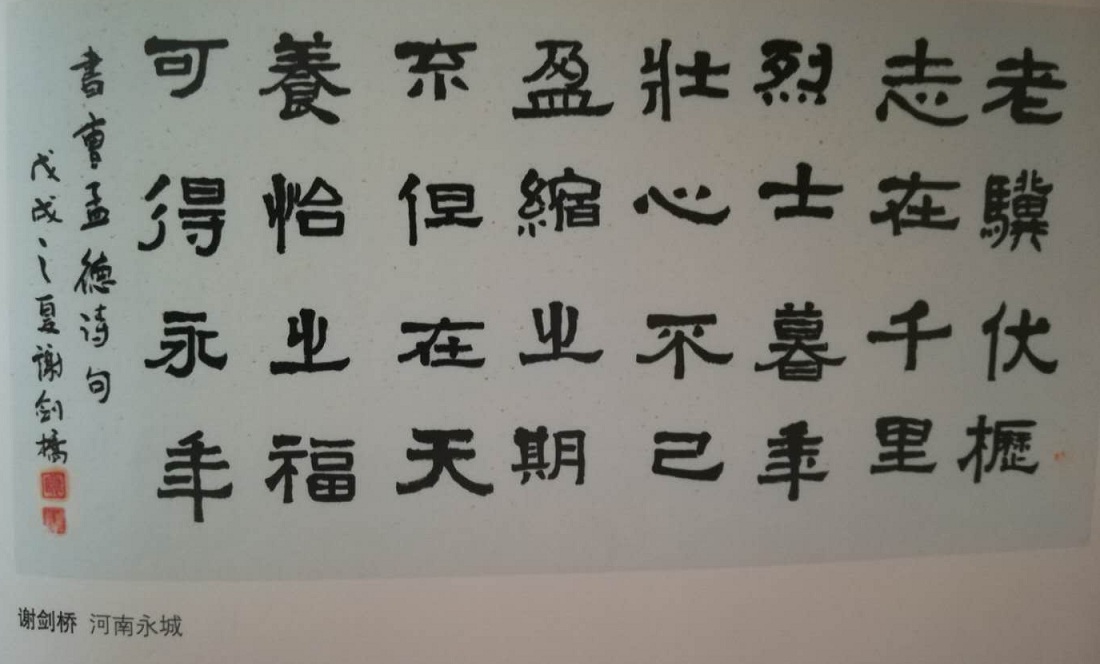 老驥伏櫪
志在千里
烈士暮年
壯心不已
盈縮之期
不但在天
養怡之福
可得永年
書曹孟德诗句
戊戌之夏谢剑橋
谢剑桥 河南永城